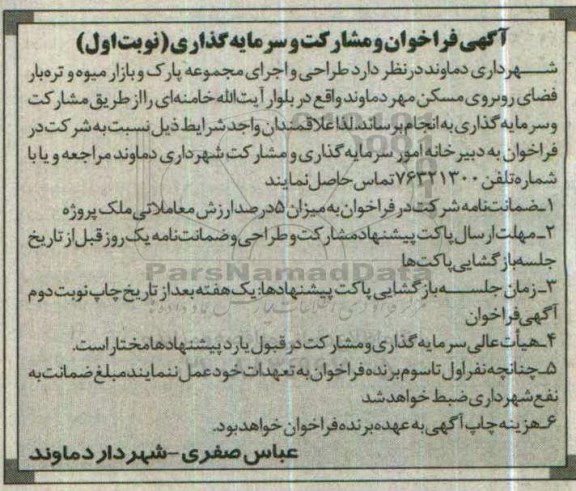 آگهی فراخوان و مشارکت و سرمایه گذاری (نوبت اول)
شهرداری دماوند در نظر دارد طراحی و اجرای مجموعه پارک و بازار میوه و تره بار
فضای روبروی مسکن مهر دماوند واقع در بلوار آیت الله خامنه ای را از طریق مشارکت
و سرمایه گذاری به انجام برساند. لذا علاقمندان واجد شرایط ذیل نسبت به شرکت در
فراخوان به دبیرخانه امور سرمایه گذاری و مشارکت شهرداری دماوند مراجعه و یا با
شماره تلفن ۷۶۳۲۱۳۰۰ تماس حاصل نمایند
۱ـ ضمانت نامه شرکت در فراخوان به میزان ۵ درصد ارزش معاملاتی ملک پروژه
۲ـ مهلت ارسال پاکت پیشنهاد مشارکت و طراحی و ضمانت نامه یک روز قبل از تاریخ
جلسه بازگشایی پاکت ها
ParsNamadData
۳ـ زمان جلسه بازگشایی پاکت پیشنهادها: یک هفته بعد از تاریخ چاپ نوبت دوم
آگهی فراخوان
۴ـ هیأت عالی سرمایه گذاری و مشارکت در قبول یا رد پیشنهادها مختار است.
۵ـ چنانچه نفر اول تا سوم برنده فراخوان به تعهدات خود عمل ننمایند مبلغ ضمانت به
نفع شهرداری ضبط خواهد شد
۶ـ هزینه چاپ آگهی به عهده برنده فراخوان خواهد بود.
عباس صفری - شهردار دماوند